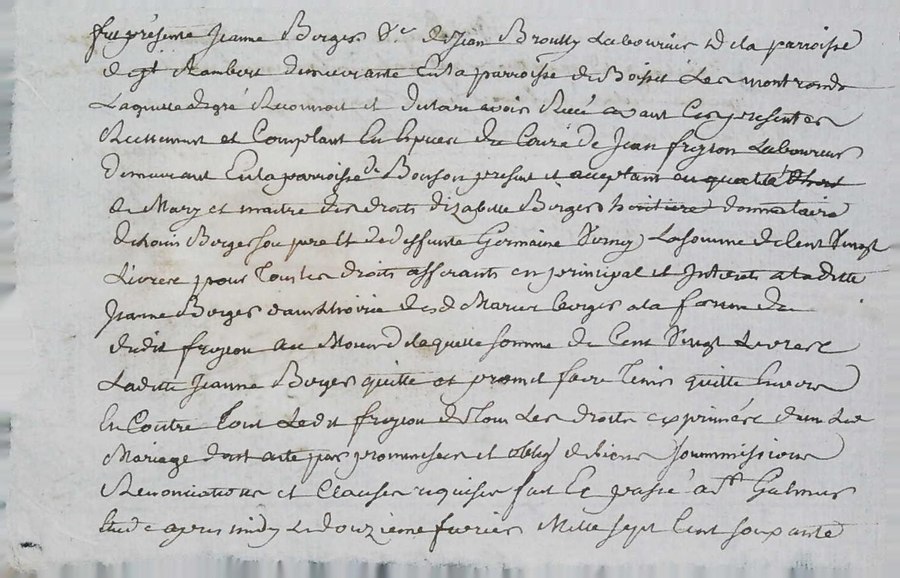 fut présente Jeanne Berger Vve de Jean Broutty Laboureur de la parroisse
de St Rambert demeurante en la parroisse de Boisset Les montronds
Laquelle de gré Reconnoit et declare avoir Receu avant Ces presentes
Reellement et Comptant en Especes de Cours de Jean frejson Laboureur
demeurant en la parroisse de Bonson present et acceptant en qualité
de Mary et maitre des droits d'izabelle Berger heritiere donnataire
de Louis Berger son pere et de deffunte Germaine La somme de Cent Vingt
Livres pour Tous les droits afferants en principal et Interets a la ditte
Jeanne Berger dans de Marie berger a la femme du
dudit frejson au laquelle somme de Cent Vingt Livres
Laditte Jeanne Berger quitte et promet faire Tenir quitte Envers
Et Contre Tous Ledit frejson de Tous Les droits exprimées dans Led
Mariage dont acte par promesses et oblig de biens soummissions
Renonciations et Clauses requises fait et passé a St Galmier
Etude apres midy Le douzieme fevrier Mille sept Cent soixante